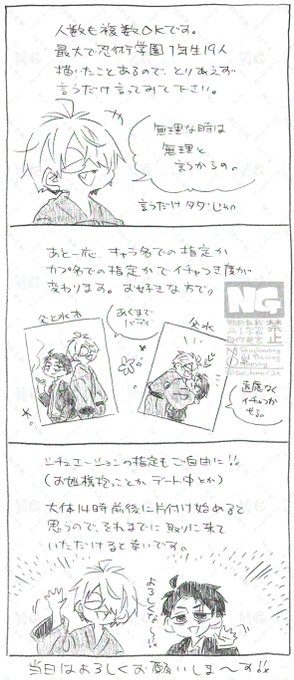 人数も複数OKです。
最大で忍術学園1年生19人
描いたことあるので、とりあえず
言うだけ言ってみて下さい。
無理な時は
無理と
言うからの。
言うだけタダじゃ
あと一応、キャラ名での指定か
カプ名での指定かでイチャつき度が
変わります。お好きな方で。
父と水木
あくまで
バディ
父水
NG
無断転載
禁止
AI学習
自作発言
遠慮なく
イチャつか
せる。
シチュエーションの指定もご自由に!!
(お姫様抱っことかデート中とか)
大体14時前後に片付け始めると
思うので、それまでに取りに来て
いただけると幸いです。
よろしくな〜!!
当日はよろしくお願いしま〜す!!